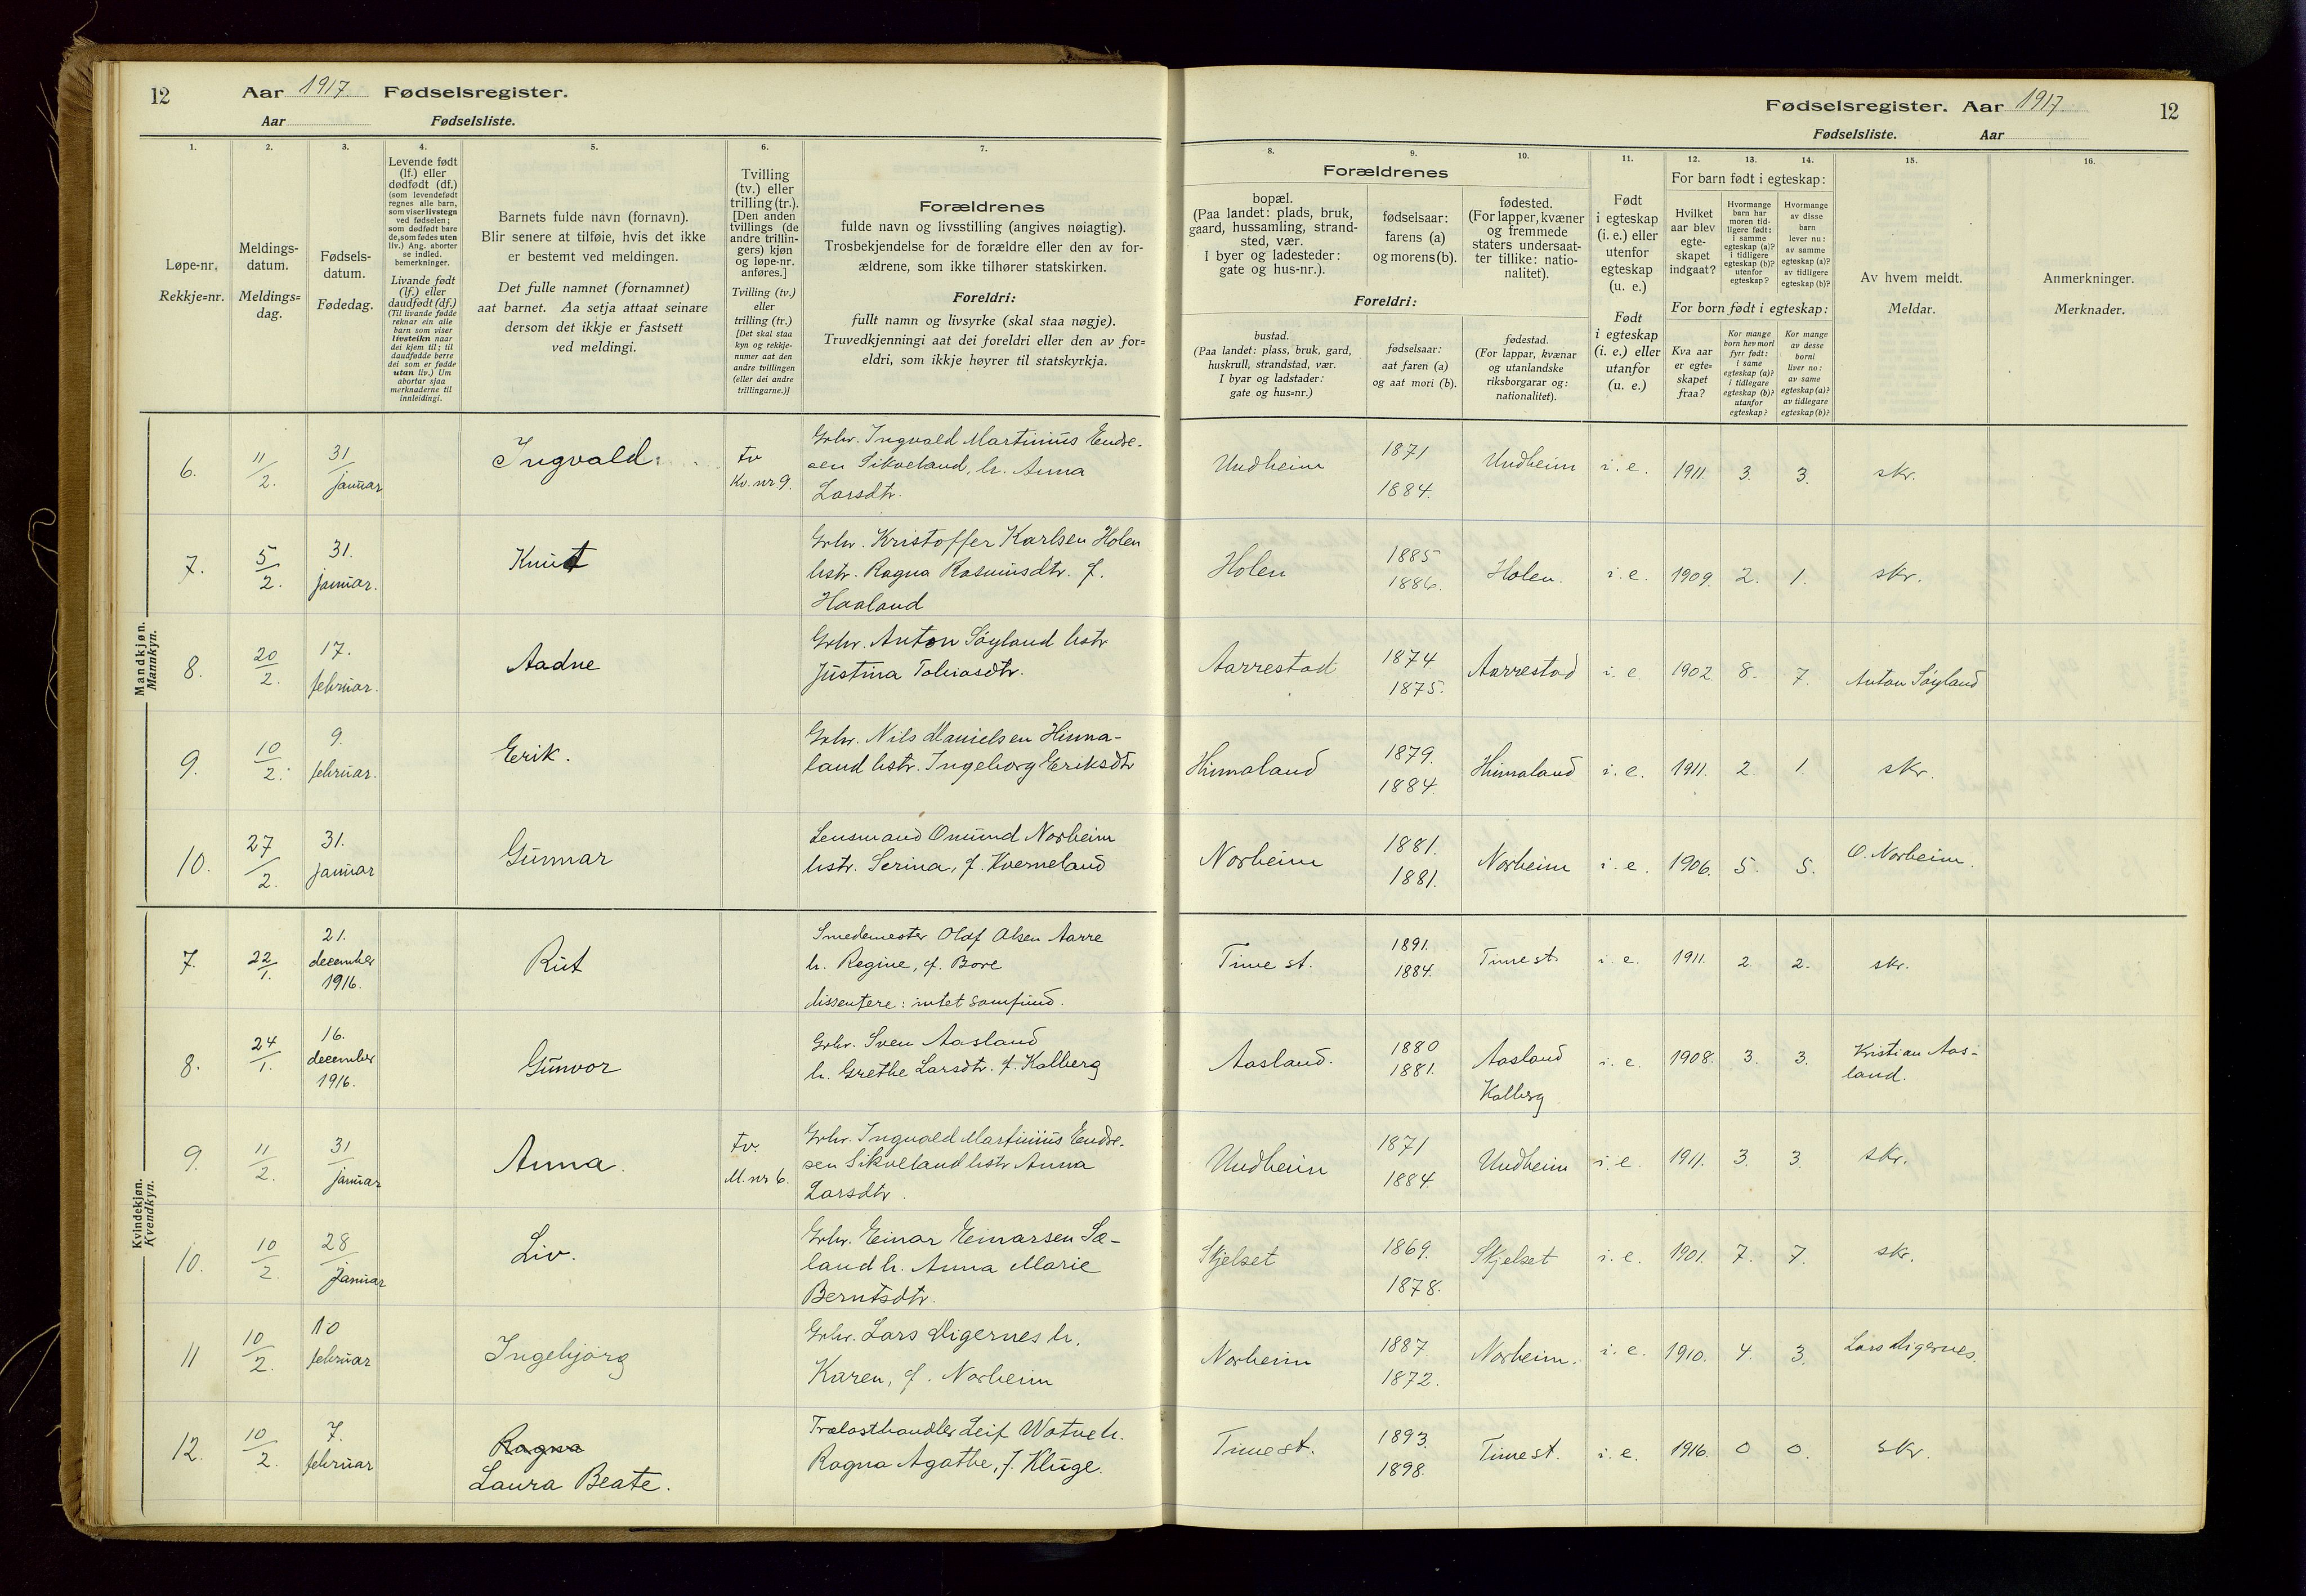 12 Aar 1917. Fødselsregister.
Aar Fødselsliste.
Fødselsregister. Aar 1917. 12
Fødselsliste. Aar
1. 2. 3. 4. 5. 6. 7.
Løpe-nr.
Rekkje=nr.
Meldings-
datum.
Meldings=
dag.
Fødsels-
datum.
Fødedag.
Levende født
(lf.) eller
dødfødt (df.)
(som levendefødt
regnes alle barn,
som viser livstegn
ved fødselen;
som dødfødt bare
de, som fødes uten
liv.) Ang. aborter
se indled.
bemerkninger.
Livande født
(lf.) eller
daudfødt (df.)
(Til livande fødde
reknar ein alle
barn som viser
livsteikn naar
dei kjem til; til
daudfødde berre
dei som er fødde
utan liv.) Um
abortar sjaa
merknaderne til
innleidingi.
Barnets fulde navn (fornavn).
Blir senere at tilføie, hvis det ikke
er bestemt ved meldingen.
Det fulle namnet (fornamnet)
aat barnet. Aa setja attaat seinare
dersom det ikkje er fastsett
ved meldingi.
Tvilling
(tv.) eller
trilling (tr.).
[Den anden
tvillings (de
andre trillin-
gers) kjøn
og løpe-nr.
anføres.]
Tvilling (tv.)
eller
trilling (tr.)
[Det skal staa
kyn og rekkje-
numer aat den
andre tvillingen
(eller dei andre
trillingarne.)]
Forældrenes
fulde navn og livsstilling (angives nøiagtig).
Trosbekjendelse for de forældre eller den av for-
ældrene, som ikke tilhører statskirken.
Foreldri:
fullt namn og livsyrke (skal staa nøgje).
Truvedkjenningi aat dei foreldri eller den av for=
eldri, som ikkje høyrer til statskyrkja.
8. 9. 10. 11. 12. 13. 14. 15. 16.
Forældrenes
bopæl.
(Paa landet: plads, bruk,
gaard, hussamling, strand-
sted, vær.
I byer og ladesteder:
gate og hus-nr.).
fødselsaar:
farens (a)
og morens (b).
fødested.
(For lapper, kvæner
og fremmede
staters undersaat-
ter tillike: natio-
nalitet).
Foreldri:
bustad.
(Paa landet: plass, bruk, gard,
huskrull, strandstad, vær.
I byar og ladstader:
gate og hus=nr.)
fødselsaar:
aat faren (a)
og aat mori (b).
fødestad.
(For lappar, kvænar
og utanlandske
riksborgarar og:
nationalitet).
Født
i egteskap
(i. e.) eller
utenfor
egteskap
(u. e.)
Født
i egteskap
(i. e.) eller
utanfor
(u. e.)
For barn født i egteskap:
Hvilket
aar blev
egte-
skapet
indgaat?
Hvormange
barn har
moren tid-
ligere født:
i samme
egteskap (a)?
i tidligere
egteskap (b)?
utenfor
egteskap?
Hvormange
av disse
barn
lever nu:
av samme
egteskap (a)?
av tidligere
egteskap (b)?
For born født i egteskap:
Kva aar
er egte=
skapet
fraa?
Kor mange
born hev mori
fyrr født:
i same
egteskap (a)?
i tidlegare
egteskap (b)?
utanfor
egteskap?
Kor mange
av desse
borni
liver no:
av same
egteskap (a)?
av tidlegare
egteskap (b)?
Av hvem meldt.
Meldar.
Anmerkninger.
Merknader.
Mandkjøn.
Mannkyn.
6. 11/2. 31/januar Ingvald. tv Kv. nr 9.
Grbr. Ingvald Martinius Endre-
sen Sikveland, h. Anna
Larsdtr.
Undheim 1871 1884. Undheim i. e. 1911. 3. 3. skr.
7. 5/2. 31. januar. Knut
Grbr. Kristoffer Karlsen Holen
hstr. Ragna Rasmusdtr. f.
Haaland
Holen 1885 1886. Holen. i. e. 1909. 2. 1. skr.
8. 20/2. 17. februar. Aadne
Grbr. Anton Søyland hstr
Justina Tobiasdtr.
Aarrestad 1874 1875. Aarrestad i. e. 1902 8. 7. Anton Søyland
9. 10/2. 9. februar. Erik.
Grbr. Nils Danielsen Hinna-
land hstr. Ingeborg Eriksdtr
Hinnaland 1879. 1884. Hinnaland i. e. 1911. 2. 1. skr.
10. 27/2. 31. januar Gunnar
Lensmand Omund Norheim
hstr. Serina, f. Kverneland
Norheim 1881. 1881. Norheim i. e. 1906. 5. 5. O. Norheim.
Kvindekjøn.
Kvendkyn.
7. 22/1. 21. december 1916. Rut
Smedemester Olaf Olsen Aarre
h. Regine, f. Bore
dissentere: intet samfund.
Time st. 1891. 1884. Time st. i. e. 1911. 2 2. skr.
8. 24/1. 16. december 1916. Gunvor
Grbr. Sven Aasland
h. Grethe Larsdtr. f. Kalberg
Aasland. 1880 1881. Aasland Kalberg i. e. 1908. 3. 3. Kristian Aas-
land.
9. 11/2. 31/januar Anna. tv. M. nr 6.
Grbr. Ingvald Martinius Endre-
sen Sikveland hstr Anna
Larsdtr.
Undheim 1871 1884 Undheim i. e. 1911. 3. 3. skr.
10. 10/2 28/januar Liv.
Grbr. Einar Einarsen Sæ-
land h. Anna Marie
Berntsdtr.
Skjelset 1869. 1878. Skjelset i. e. 1901. 7. 7. skr.
11 10/2. 10 februar Ingebjørg
Grbr. Lars Digernes h.
Karen, f. Norheim
Norheim 1887. 1872. Norheim. i. e. 1910. 4. 3. Lars Digernes.
12. 10/2. 7. februar Ragna
Laura Beate.
Trælasthandler Leif Watne h.
Ragna Agathe, f. Kluge.
Time st. 1893. 1898. Time st. i. e. 1916. 0 0. skr.